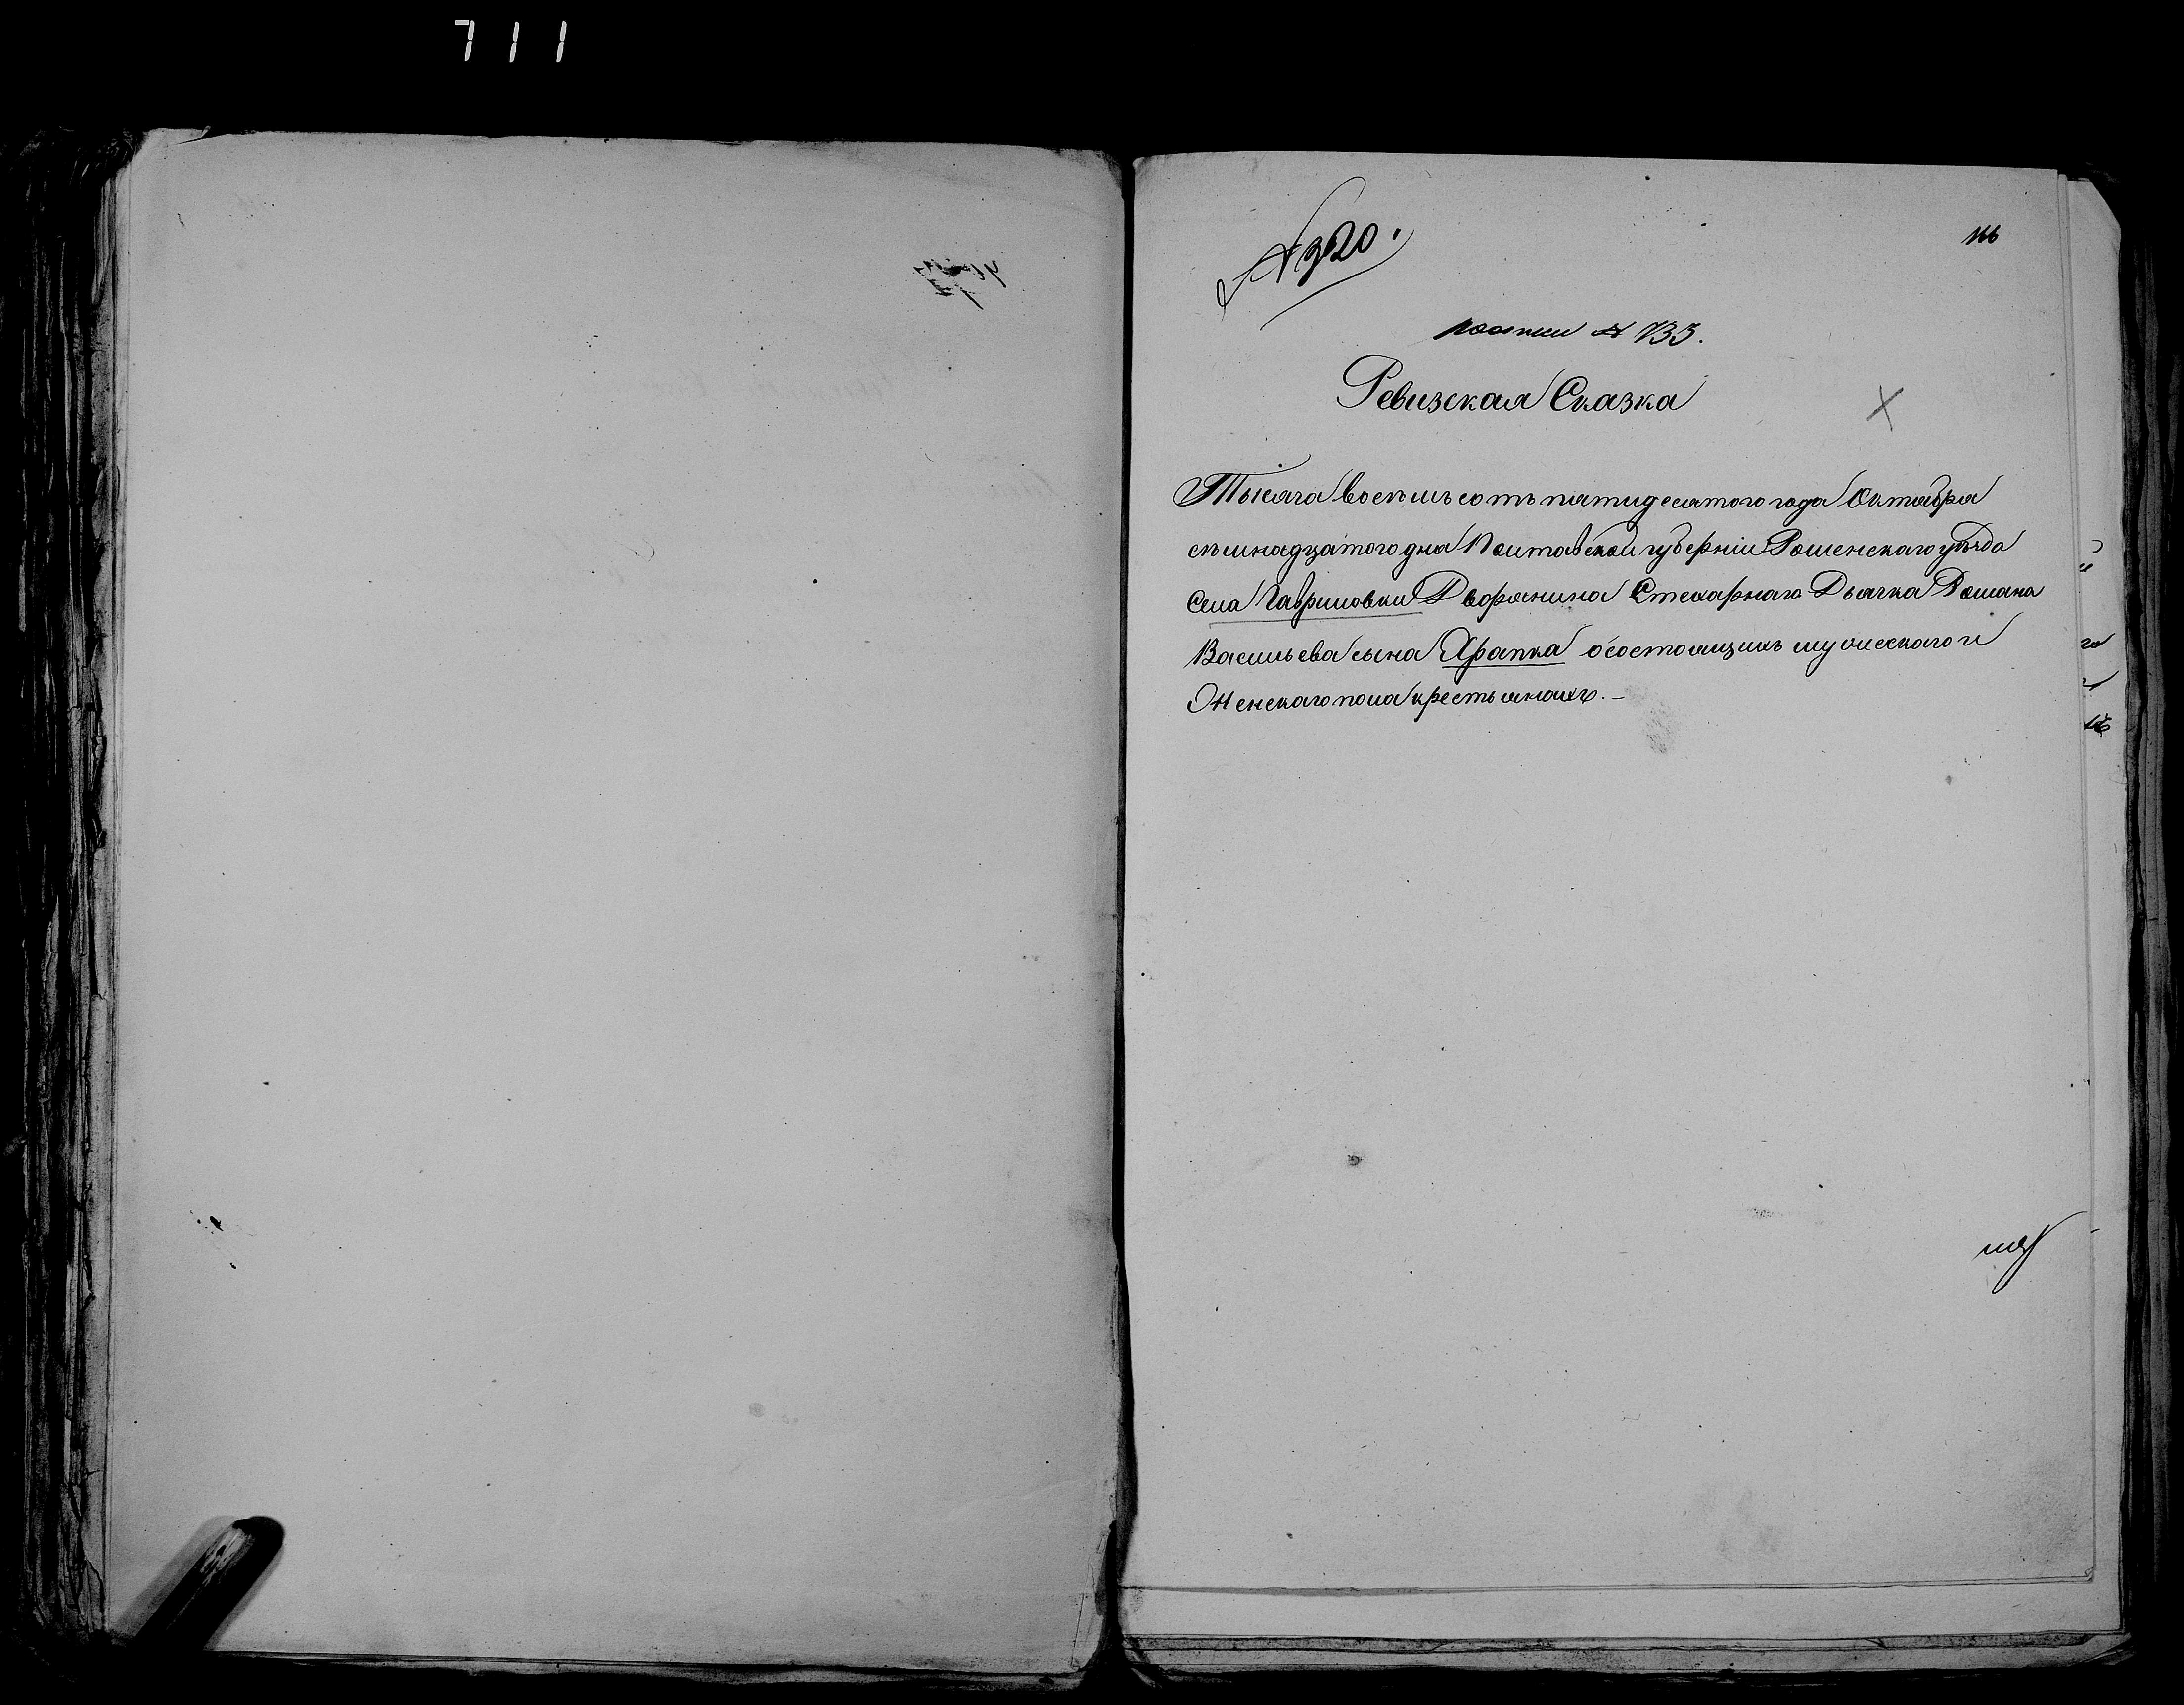 711
166
№ 320.
№ 733.
Ревизская Сказка
Тысяча восемь сотъ пятидесятого года Октября
семнадцатого дня Полтавской губерніи Роменскаго уѣзда
Села Гавриловки Дворянина Стихарнаго Дьячка Романа
Васильева сына Храпка о состоящихъ мужескаго и
Женскаго пола крестьянахъ. —